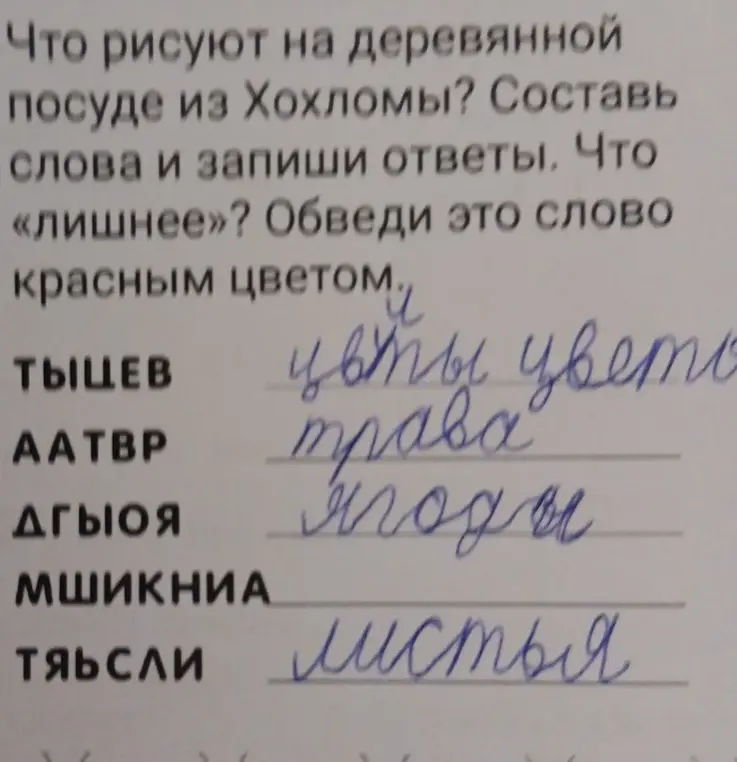 Что рисуют на деревянной
посуде из Хохломы? Составь
слова и запиши ответы. Что
«лишнее»? Обведи это слово
красным цветом.
ТЫЦЕВ цветы
ААТВР трава
ДГЫОЯ ягоды
МШИКНИА
ТЯЬСЛИ листья